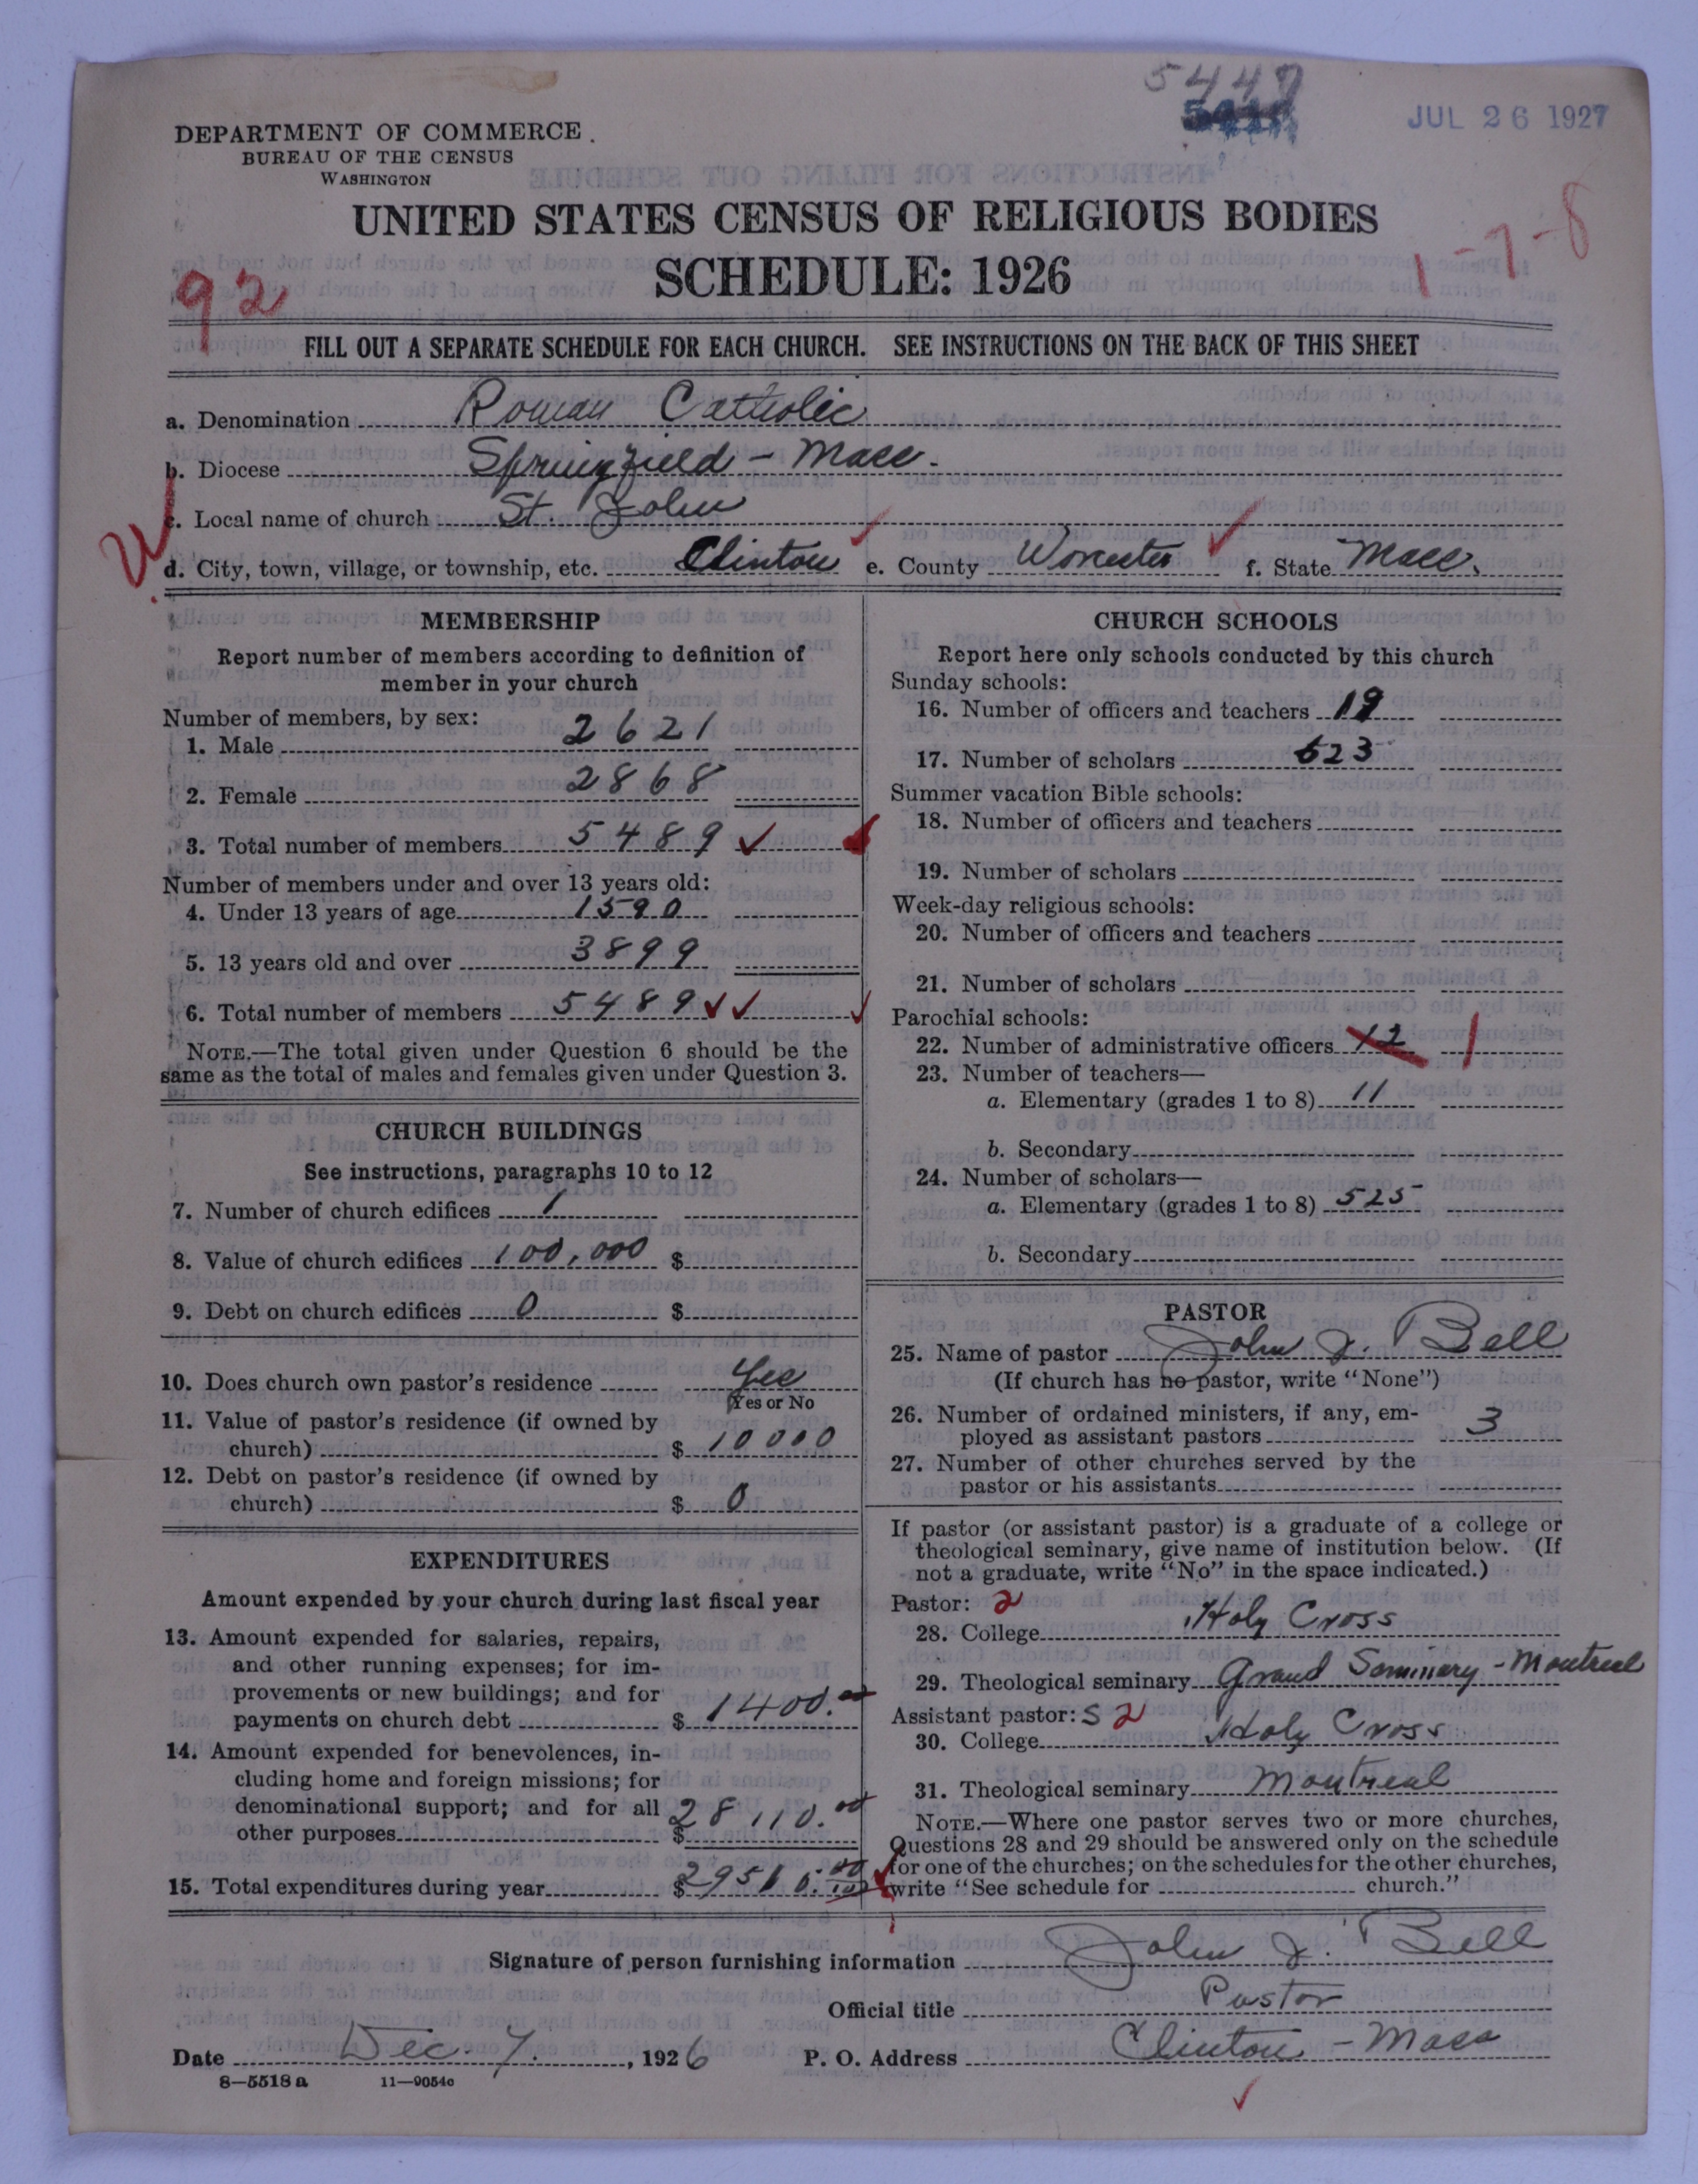 5447
JUL 26 1927
DEPARTMENT OF COMMERCE
BUREAU OF THE CENSUS
WASHINGTON
UNITED STATES CENSUS OF RELIGIOUS BODIES
SCHEDULE: 1926
92
1-7-8
FILL OUT A SEPARATE SCHEDULE FOR EACH CHURCH. SEE INSTRUCTIONS ON THE BACK OF THIS SHEET
a. Denomination Roman Catholic
b. Diocese Springfield - Mass.
c. Local name of church St. John
d. City, town, village, or township, etc. Clinton e. County Worcester f. State Mass.
MEMBERSHIP
Report number of members according to definition of
member in your church
Number of members, by sex:
1. Male 2621
2. Female 2868
3. Total number of members 5489
Number of members under and over 13 years old:
4. Under 13 years of age 1590
5. 13 years old and over 3899
6. Total number of members 5489
NOTE.—The total given under Question 6 should be the
same as the total of males and females given under Question 3.
CHURCH BUILDINGS
See instructions, paragraphs 10 to 12
7. Number of church edifices 1
8. Value of church edifices 100,000 $
9. Debt on church edifices 0 $
10. Does church own pastor's residence Yes
Yes or No
11. Value of pastor's residence (if owned by
church) $ 10000
12. Debt on pastor's residence (if owned by
church) $ 0
EXPENDITURES
Amount expended by your church during last fiscal year
13. Amount expended for salaries, repairs,
and other running expenses; for im-
provements or new buildings; and for
payments on church debt $ 1400.00
14. Amount expended for benevolences, in-
cluding home and foreign missions; for
denominational support; and for all
other purposes $ 28110.00
15. Total expenditures during year $ 29510.00
CHURCH SCHOOLS
Report here only schools conducted by this church
Sunday schools:
16. Number of officers and teachers 19
17. Number of scholars 623
Summer vacation Bible schools:
18. Number of officers and teachers
19. Number of scholars
Week-day religious schools:
20. Number of officers and teachers
21. Number of scholars
Parochial schools:
22. Number of administrative officers 12 1
23. Number of teachers—
a. Elementary (grades 1 to 8) 11
b. Secondary
24. Number of scholars—
a. Elementary (grades 1 to 8) 525
b. Secondary
PASTOR
25. Name of pastor John J. Bell
(If church has no pastor, write "None")
26. Number of ordained ministers, if any, em-
ployed as assistant pastors 3
27. Number of other churches served by the
pastor or his assistants
If pastor (or assistant pastor) is a graduate of a college or
theological seminary, give name of institution below. (If
not a graduate, write "No" in the space indicated.)
Pastor: 2
28. College Holy Cross
29. Theological seminary Grand Seminary - Montreal
Assistant pastor: S 2
30. College Holy Cross
31. Theological seminary Montreal
NOTE.—Where one pastor serves two or more churches,
Questions 28 and 29 should be answered only on the schedule
for one of the churches; on the schedules for the other churches,
write "See schedule for church."
Signature of person furnishing information John J. Bell
Official title Pastor
Date Dec. 7, 1926 P. O. Address Clinton - Mass
8—5518 a 11—9054c